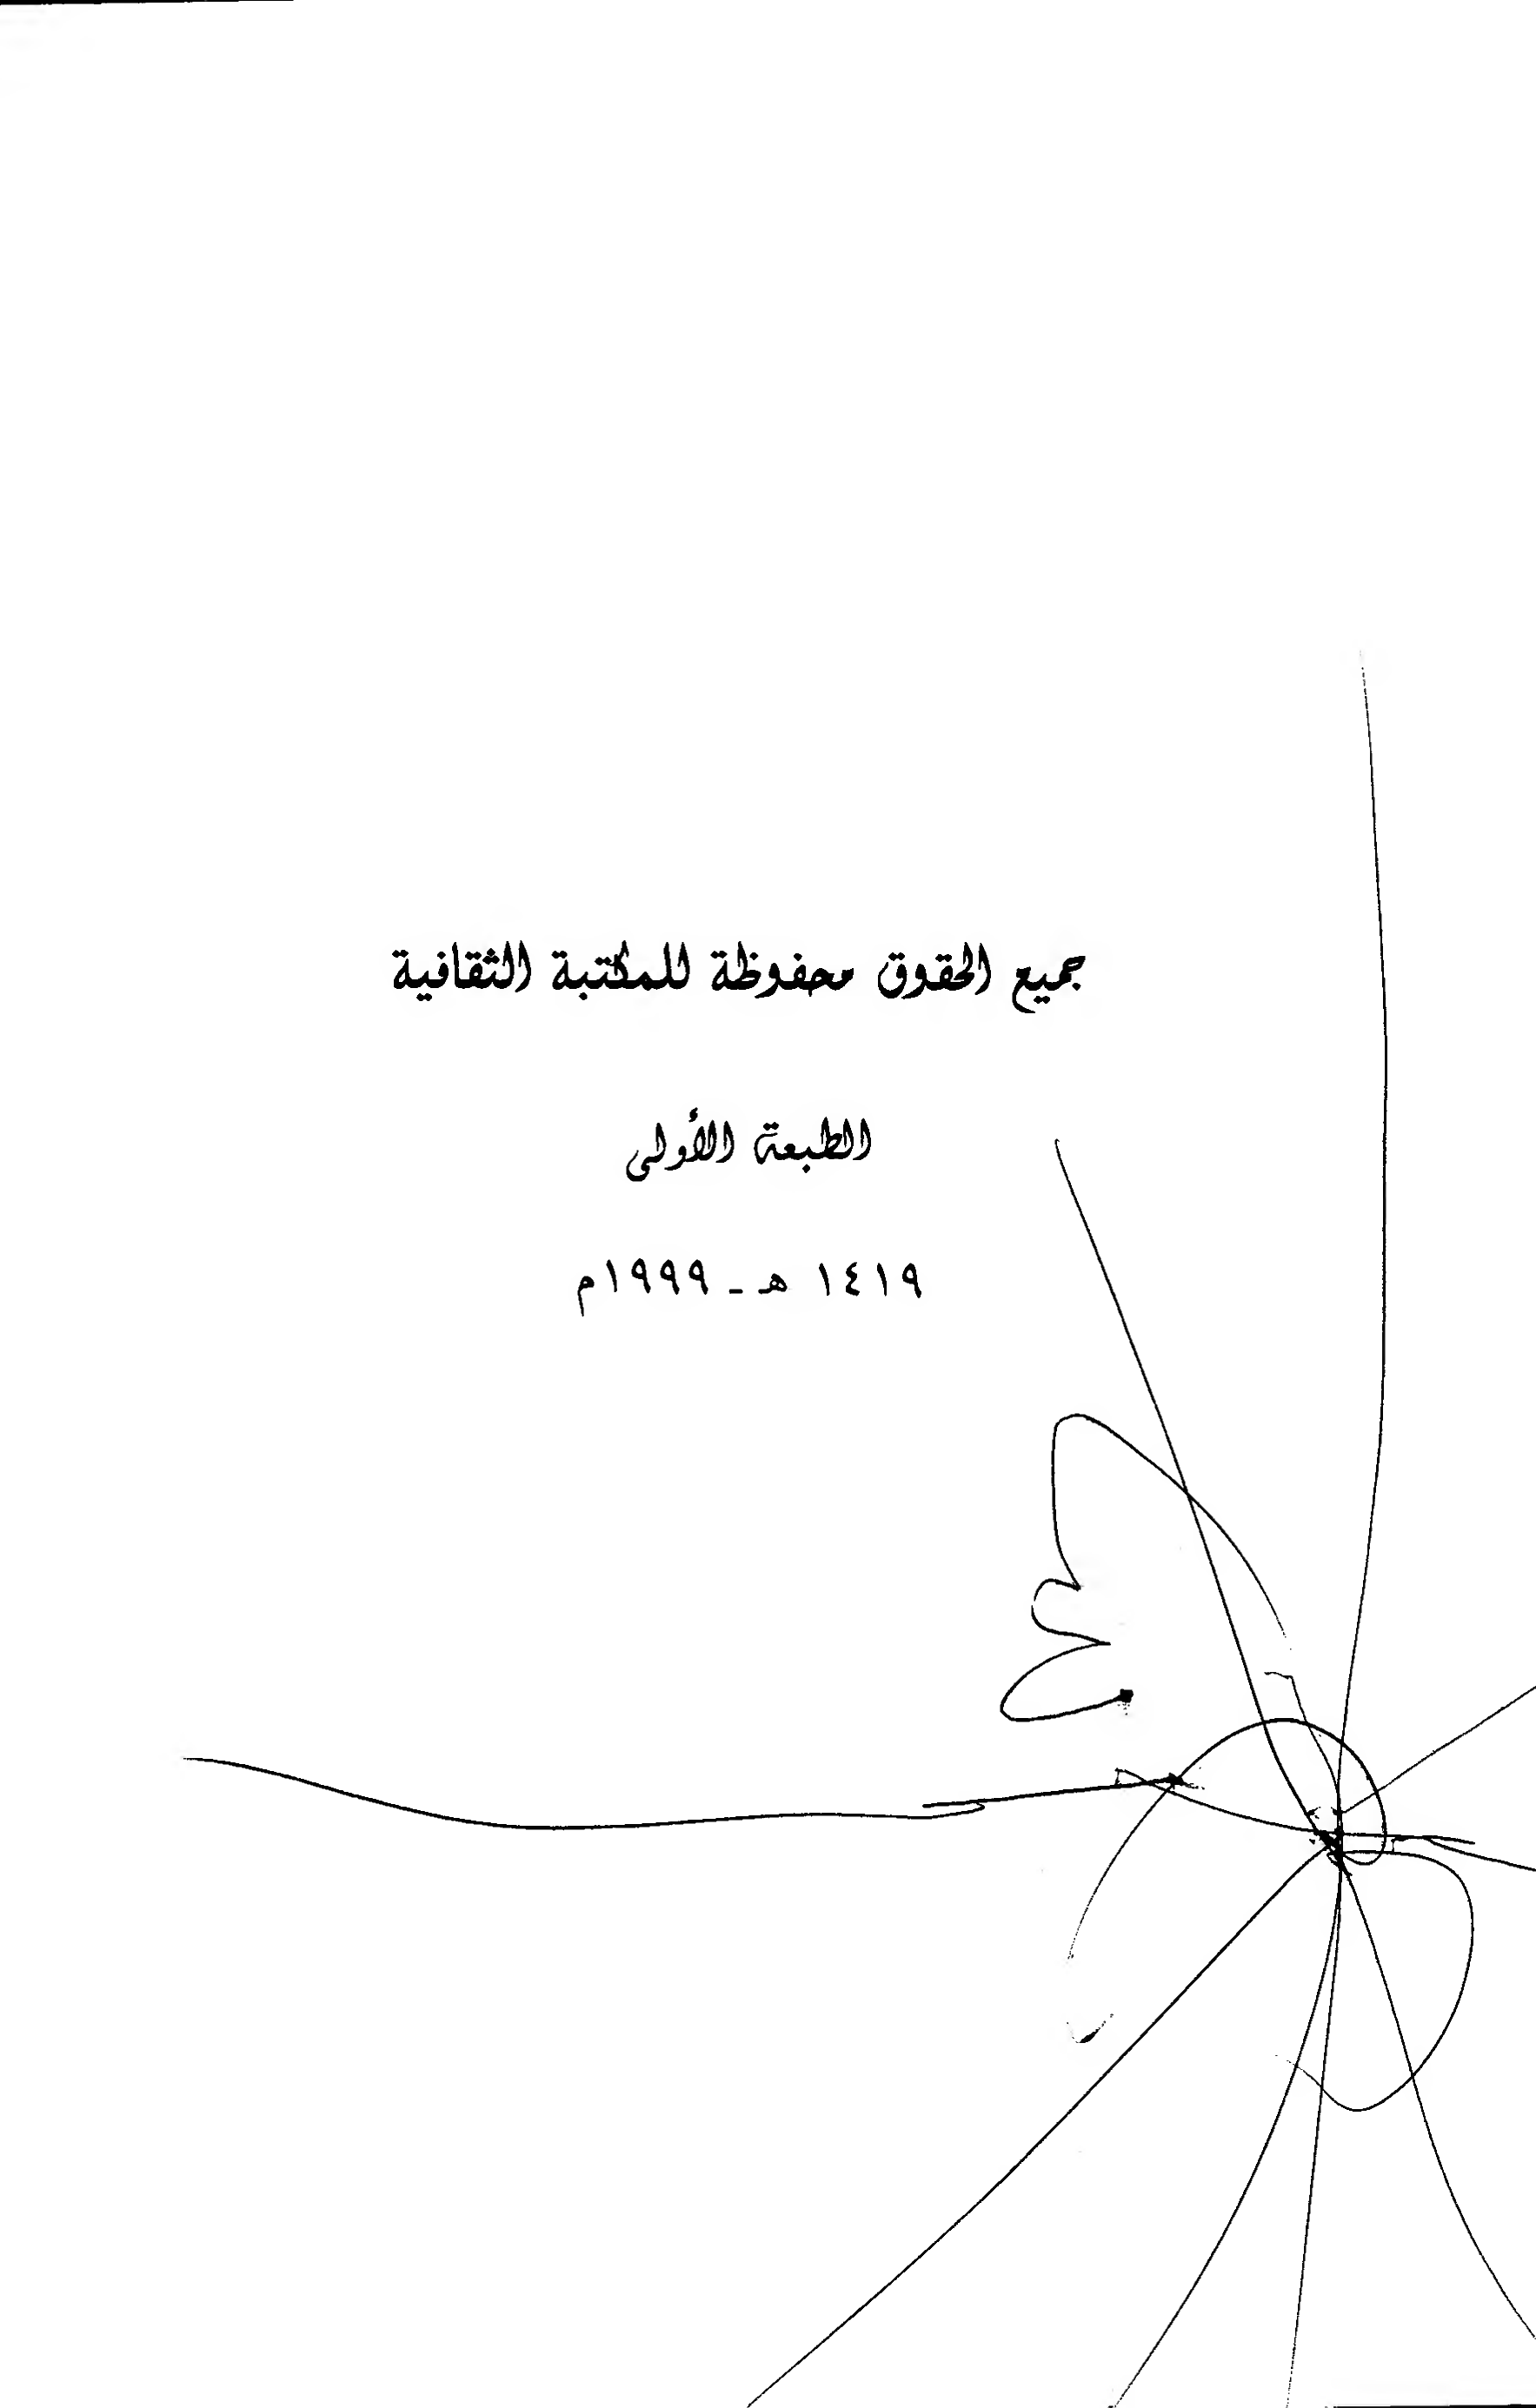 جميع الحقوق محفوظة للمكتبة الثقافية
الطبعة الأولى
١٤١٩ هـ ـ ١٩٩٩م